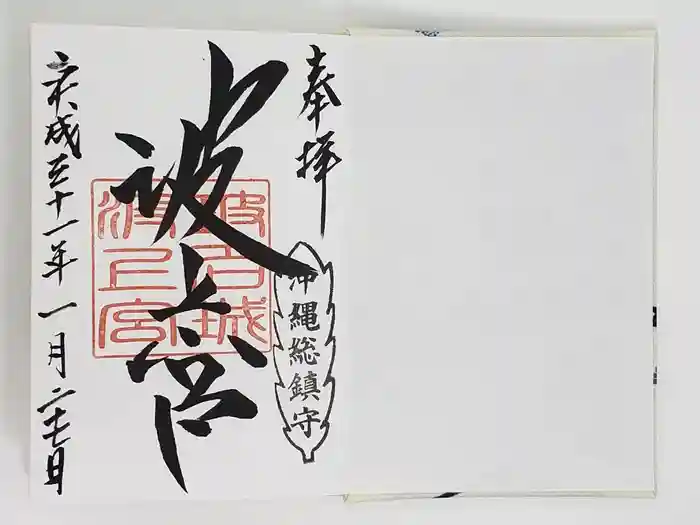 奉拝
沖縄総鎮守
波上宮
波上宮
平成三十一年一月二十七日